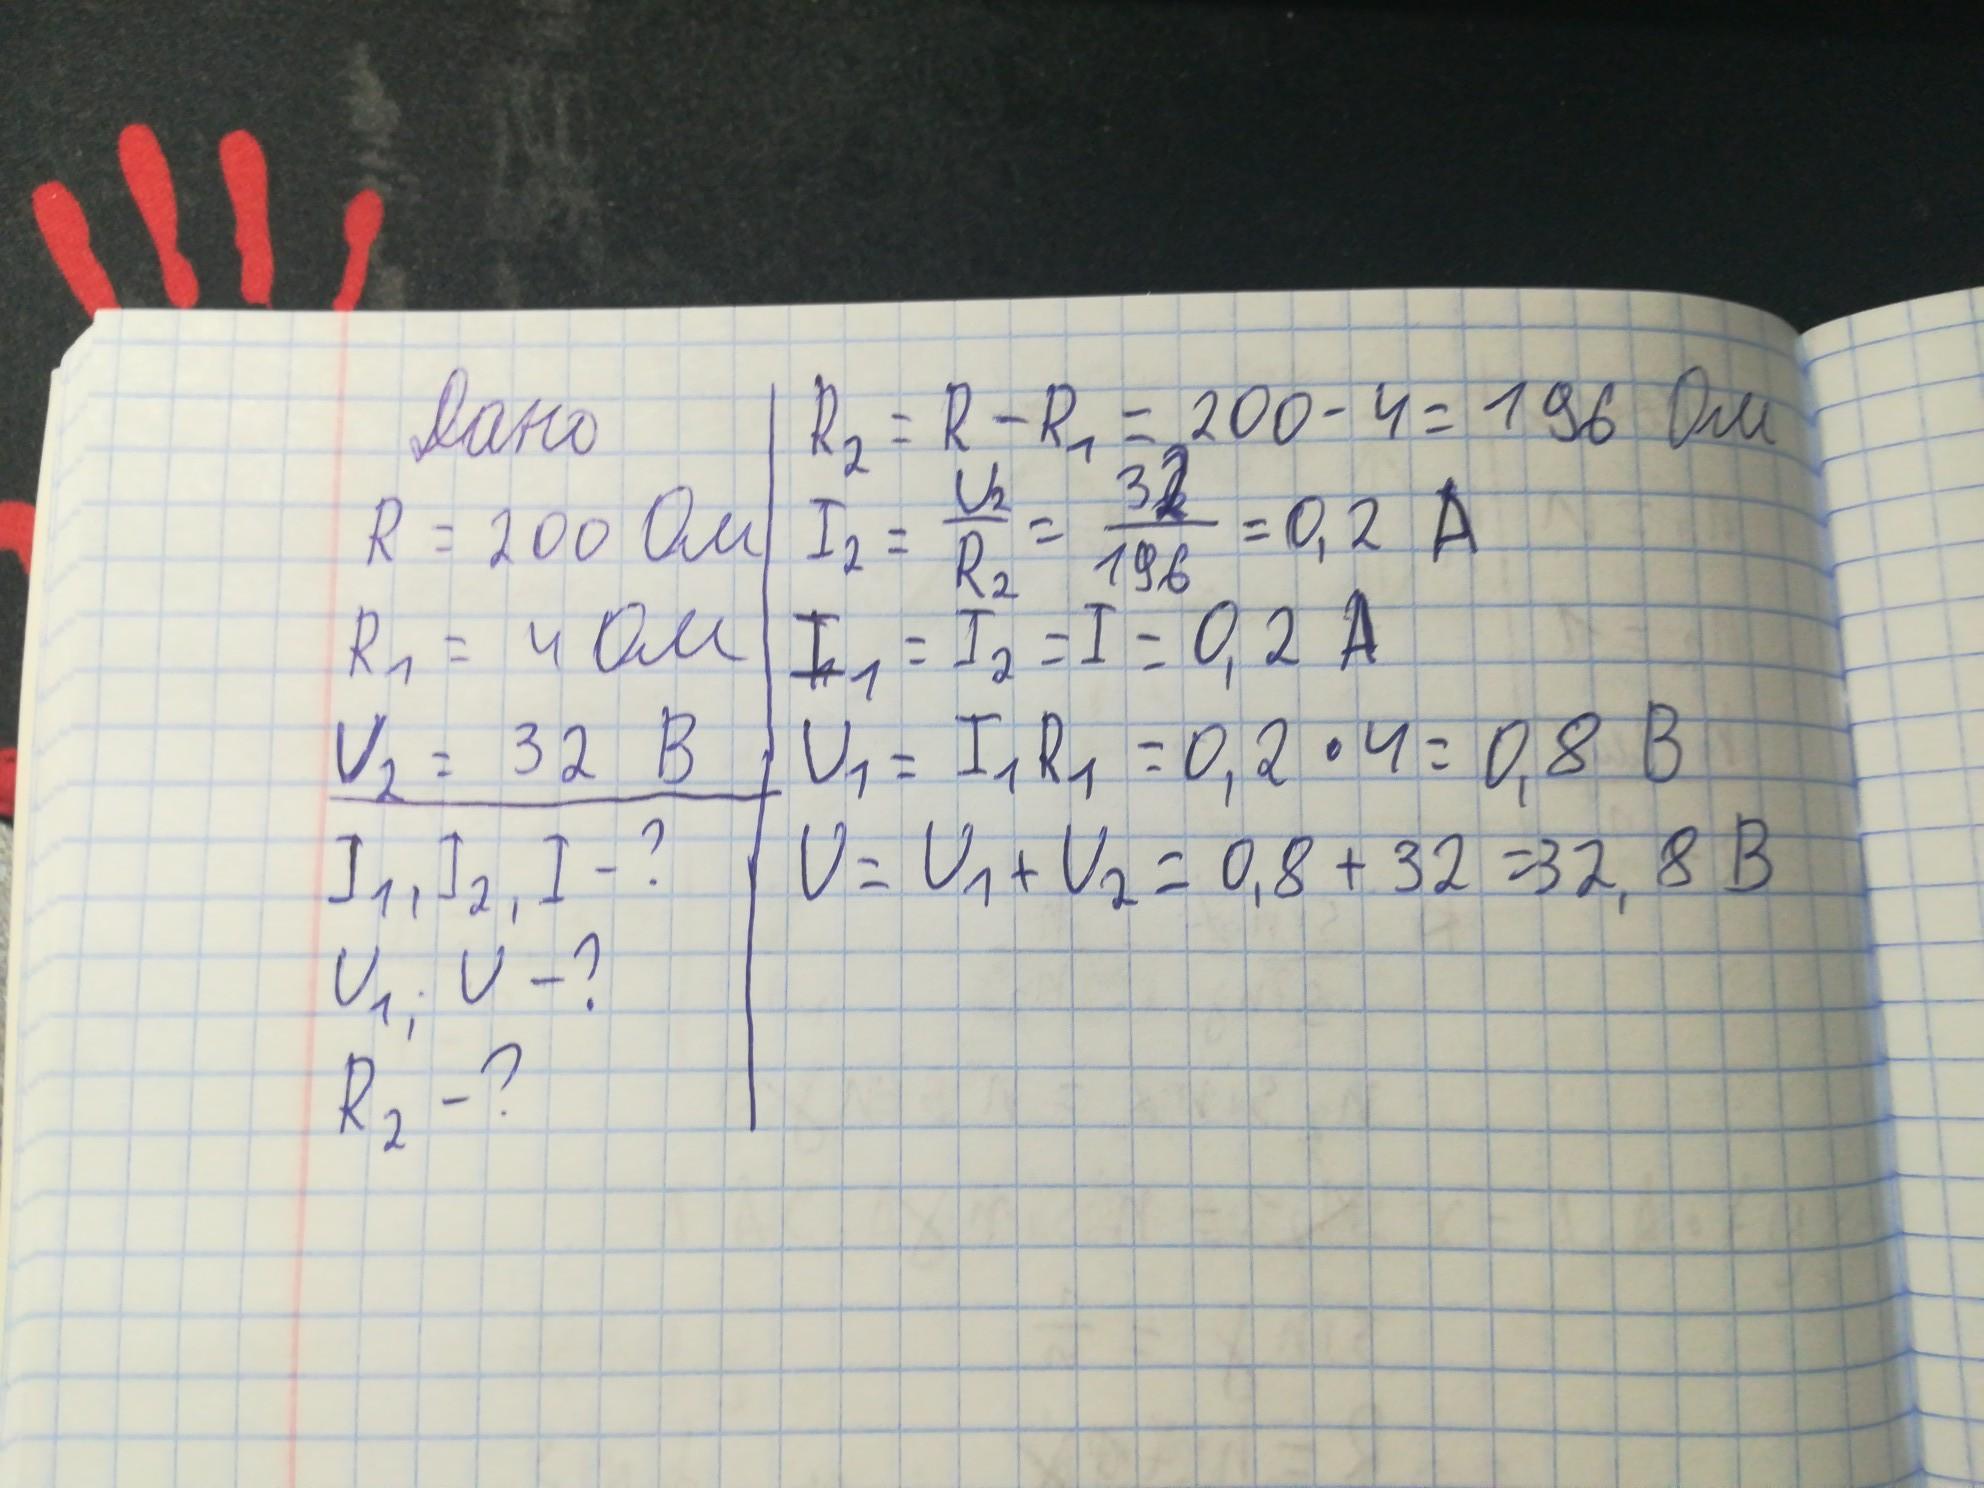 Дано
R = 200 Ом
R₁ = 4 Ом
U₂ = 32 В
I₁, I₂, I - ?
U₁; U - ?
R₂ - ?
R₂ = R - R₁ = 200 - 4 = 196 Ом
I₂ = U₂/R₂ = 32/196 = 0,2 А
I₁ = I₂ = I = 0,2 А
U₁ = I₁R₁ = 0,2 · 4 = 0,8 В
U = U₁ + U₂ = 0,8 + 32 = 32,8 В